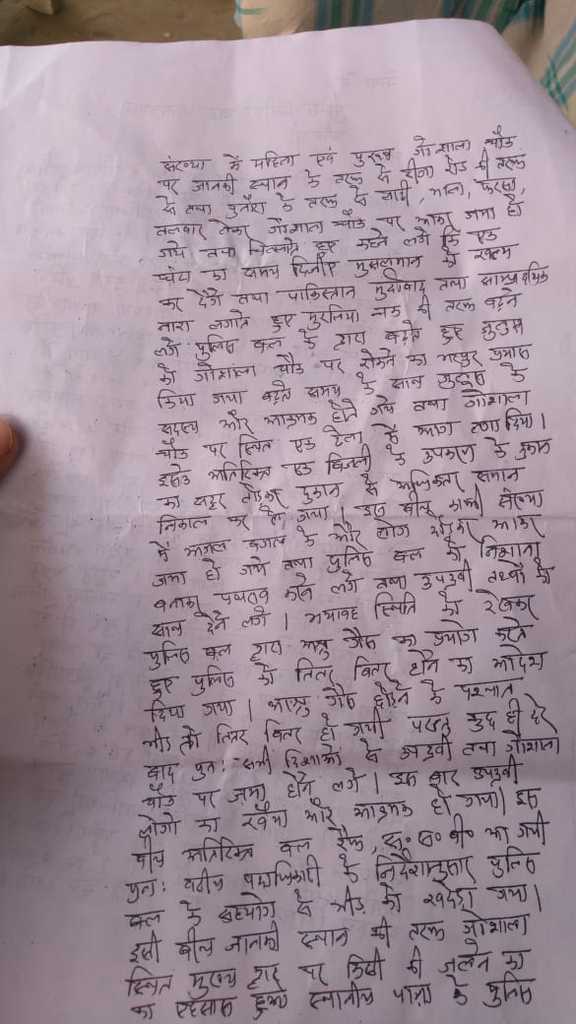 संख्या में महिला एवं पुरूष गोशाला चौक
पर जानकी स्थान के तरफ से रीगा रोड की तरफ
से तथा पुनौरा के तरफ से लाठी, भाला, फरसा,
तलवार लेकर गोशाला चौक पर आकर जमा हो
गये तथा चिल्लाते हुए कहने लगे कि एक
घंटा का समय दिजीए मुसलमान को खत्म
कर देंगे तथा पाकिस्तान मुर्दाबाद तथा साम्प्रदायिक
नारा लगाते हुए मुरलिया चक की तरफ बढ़ने
लगे पुलिस बल के द्वारा बढ़ते हुए जुलुस
को गोशाला चौक पर रोकने का भरपुर प्रयास
किया गया बढ़ते समय के साथ जुलुस के
सदस्य और आक्रमक होते गये तथा गोशाला
चौक पर स्थित एक ठेला में आग लगा दिया।
इसके अतिरिक्त एक बिजली के उपकरण के दुकान
का शटर तोड़कर दुकान से अधिकतर समान
निकाल कर ले गया। इस बीच काफी संख्या
में अगल बगल के और लोग आकर
जमा हो गये तथा पुलिस बल को निशाना
बनाकर पथराव करने लगे तथा उपद्रवी तत्वों को
साथ देने लगे। भयावह स्थिति को देखकर
पुलिस बल द्वारा अश्रु गैस का प्रयोग करते
हुए पुलिस को तितर बितर होने का आदेश
दिया गया। आश्रु गैस छोड़ने के पश्चात
भीड़ तो तितर बितर हो गयी परन्तु कुछ ही देर
बाद पुनः सभी दिशाओं से उपद्रवी तत्व गोशाला
चौक पर जमा होने लगे। इस बार उपद्रवी
लोगों का रवैया और आक्रमक हो गया। इस
बीच अतिरिक्त बल रैफ, एस॰ एस॰ बी॰ आ गयी
पुनः वरीय पदाधिकारी के निर्देशानुसार पुलिस
बल के सहयोग से भीड़ को खदेड़ा गया।
इसी बीच जानकी स्थान की तरफ गोशाला
स्थित मुख्य द्वार पर किसी की जलने का
का एहसास हुआ स्थानीय थाना के पुलिस